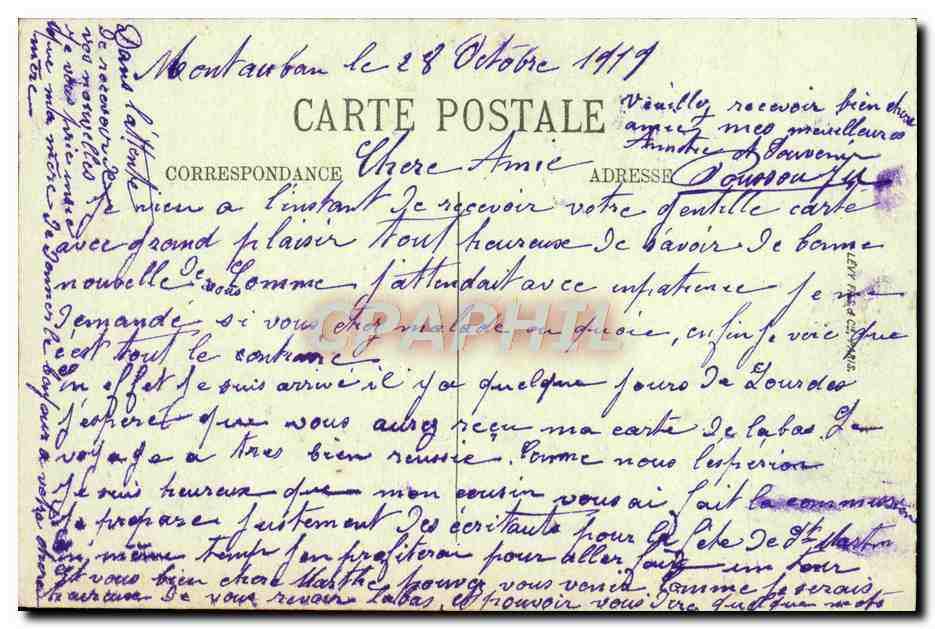 Montauban le 28 Octobre 1919
CARTE POSTALE
CORRESPONDANCE
Chere Amie
ADRESSE
Je vien a l'instant de recevoir votre gentille carte
avec grand plaisir tout heureuse de savoir de bonne
nouvelle de vous Comme j'attendait avec inpatience je me
demandé si vous etez malade ou quoie, enfin je voie que
c'est tout le contraire
En effet je suis arrivé il y a quelque jours de Lourdes
j'esperet que vous aurez reçu ma carte de labas. Le
voyage a tres bien reussie. Comme nous l'esperion
Je suis heureux que mon cousin vous ai fait la commission
Je prepare justement des écritauts pour la fete de St Martin
en même temp j'en profiterai pour aller faire un tour
Et vous bien chere Marthe pouvez vous venir comme je serais
heureuse de vous revoir labas, et pouvoir vous dire quelque mots
Dans l'attente
de recevoir de
vos nouvelles
Je vous prie
que ma mère de donner le bonjour a votre chere
mère
Veuillez recevoir bien chere
amie mes meilleures
Amitie et Souvenir
LEVY FILS & Cie PARIS.
CPAPHIL